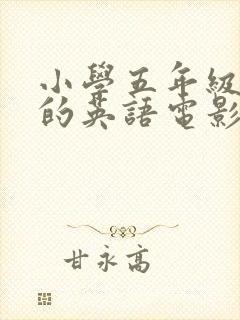 小學五年級
的英語電影
甘永高